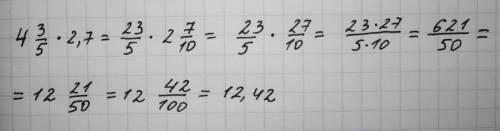 4 3/5 · 2,7 = 23/5 · 2 7/10 = 23/5 · 27/10 = 23·27/5·10 = 621/50 =
= 12 21/50 = 12 42/100 = 12,42